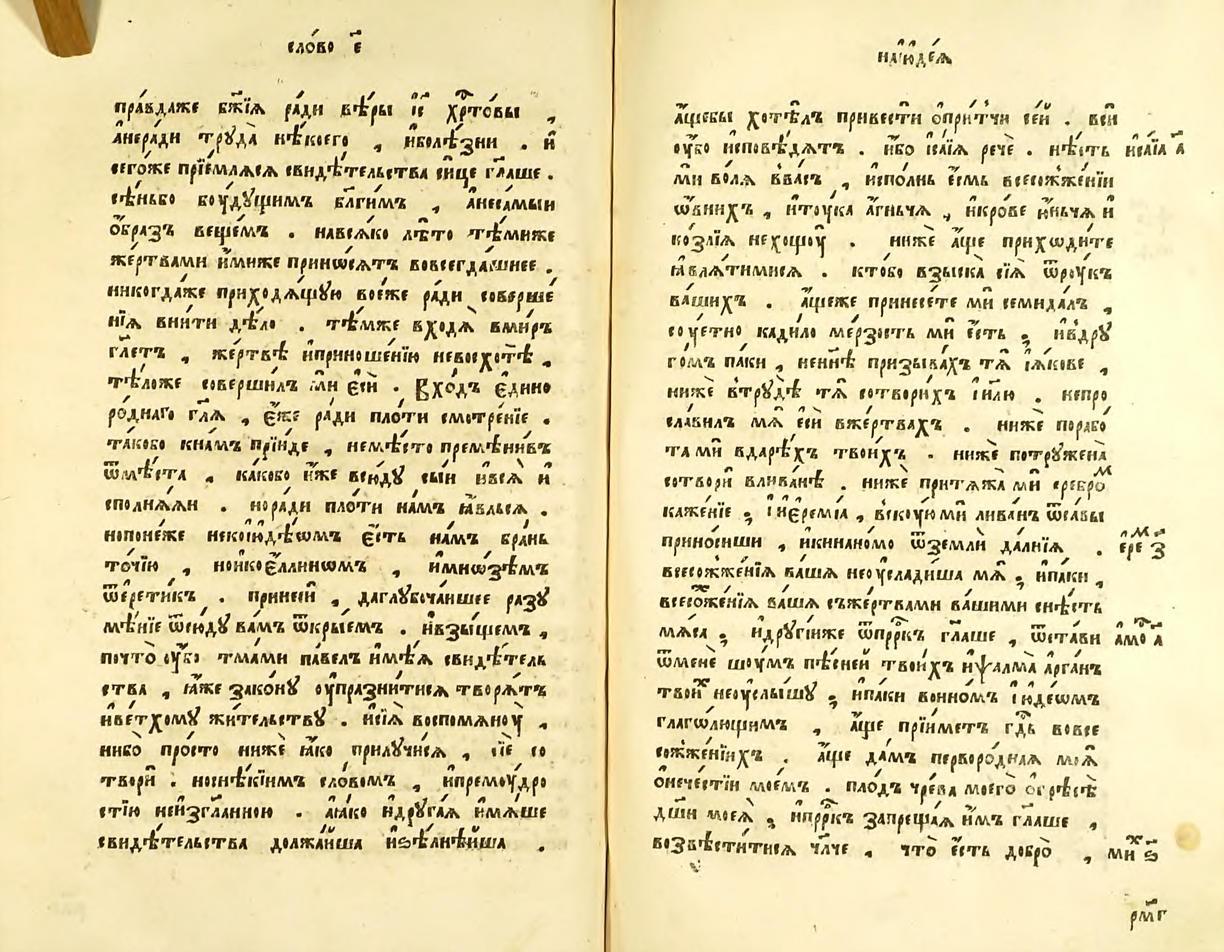 сло́во є҃
пра́вдаже бж҃їѧ ра́ди вѣ́ры і҆с хрⷭ҇то́вы ,
а҆неради трꙋда̀ нѣ́коего , и҆болѣ́зни . и҆
сегоже прїе́млѧсѧ свидѣ́тельства си́це гл҃аше .
сѣ́ньбо боу́дꙋщимъ бл҃ги́мъ , а҆неса́мыи
ѻ҆́бразъ веще́мъ . навсѧ́ко лѣ́то тѣ́миже
же́ртвами и҆́миже прино́сѧтъ вовсегда́шнее .
никогда́же приходѧ́щꙋю во́еже ра́ди соверше́
нїѧ вни́ти дѣ́ло . тѣ́мже входѧ̀ вми́ръ
гл҃етъ , же́ртвѣ и҆приноше́нїю невосхотѣ̀ ,
тѣ́ложе соверши́лъ ми є҆сѝ . Вхо́дъ є҆дино
ро́днаго гл҃ѧ , є҆́же ра́ди пло́ти смотре́нїе .
та́кобо кна́мъ прїи́де , немѣ́сто премѣни́въ
ѿмѣ́ста , ка́кобо и҆́же всю́дꙋ сы́и и҆всѧ̀ и҆
сполнѧ́ѧи . нора́ди пло́ти на́мъ ꙗ҆́вльсѧ .
нопоне́же некоі҆ꙋде́ѡмъ є҆́сть на́мъ бра́нь
то́чїю , нои҆коє҆́ллиномъ , и҆мно́зѣмъ
ѿе҆рети́къ . принесѝ , даглꙋбоча́ишее разꙋ
мѣ́нїе ѿсю́дꙋ ва́мъ ѿкры́емъ . и҆взы́щемъ ,
почто̀ ѹ҆́бо тма́ми па́вел и҆мѣ́ѧ свидѣ́тель
ства , ꙗ҆́же зако́нꙋ ѹ҆праздни́тисѧ творѧ́тъ
и҆ве́тхомꙋ жи́тельствꙋ . и҆сїѧ̀ воспомѧнꙋ̀ ,
нибо̀ про́сто нижѐ ꙗ҆́ко прилꙋчи́сѧ , сїѐ со
творѝ . носнѣ́кїимъ сло́вомъ , и҆премоу́дро
стїю неи҆згл҃а́нною . а҆ꙗ҆́ко и҆дрꙋга́ѧ и҆мѧ́ше
свидѣ́тельства должа́йша и҆ѕѣ́лнѣйша .
наі҆ꙋде́ѧ
а҆́щебы хотѣ́лъ привестѝ ѻ҆при́тчи се́й . всѝ
ѹ҆́бо и҆сповѣ́дѧтъ . и҆́бо і҆са́їѧ речѐ . нѣ́сть и҆са́їа а҃
мѝ во́лѧ вва́съ , и҆спо́лнь є҆́смь всесожже́нїи
ѻ҆́внихъ , и҆тоу́ка а҆́гньчѧ , и҆кро́ве ю҆́ньчѧ и҆
ко́злїѧ нехощꙋ̀ . нижѐ а҆́ще прихо́дите
ꙗ҆влѧ́тимисѧ . кто́бо взыска̀ сїѧ̀ ѿроу́къ
ва́шихъ . а҆́щеже принесе́те мѝ семида́лъ ,
соу́етно кади́ло ме́рзость мѝ є҆́сть , и҆вдрꙋ
го́мъ па́ки , нени́нѣ призыва́хъ тѧ̀ і҆ѧ́кове ,
нижѐ втрꙋдѣ̀ тѧ̀ сотвори́хъ і҆и҃лю . непро
сла́вилъ мѧ̀ є҆сѝ вже́ртвахъ . нижѐ порабо́
та мѝ вдарѣ́хъ твои́хъ . нижѐ потрꙋжена̀
сотворѝ влива́нѣ . нижѐ притѧжа̀ мѝ сребро́ⷨ
каже́нїе , і҆и҆ереми́а , вскоую́ мѝ лива́н ѿса́вы
прино́сиши , и҆кинамо́мо ѿземлѝ да́лнїѧ . і҆ереⷨ ѕ҃
всесожже́нїѧ ва́шѧ неоу҆слади́ша мѧ̀ , и҆па́ки ,
всесоⷤже́нїѧ ва́шѧ съже́ртвами ва́шими снѣ́сть
мѧса̀ , и҆дрꙋгі́иже ѿпрⷪ҇ркъ гл҃аше , ѿста́ви а҆моⷭ҇ а҃
ѿменѐ шоу́мъ пѣ́сней твои́хъ и҆ѱалма̀ а҆рга́нъ
твоиⷯ неоу҆слы́шꙋ , и҆па́ки во́нномъ і҆ꙋде́ѡмъ
глаго́лющимъ , а҆́ще прїи́метъ гдⷭ҇ь во́все
сожже́нїихъ . а҆́ще да́мъ перворо́днаѧ моѧ̀
ѻ҆нече́стїи мое́мъ . пло́дъ чре́ва моего̀ ѻ҆грѣсѣ̀
дш҃и моеѧ̀ , и҆прⷪ҇ркъ запреща́ѧ и҆́мъ гл҃аше ,
возвѣсти́тисѧ чл҃че , что̀ є҆́сть добро̀ , миⷯ ѕ҃
рм҃г